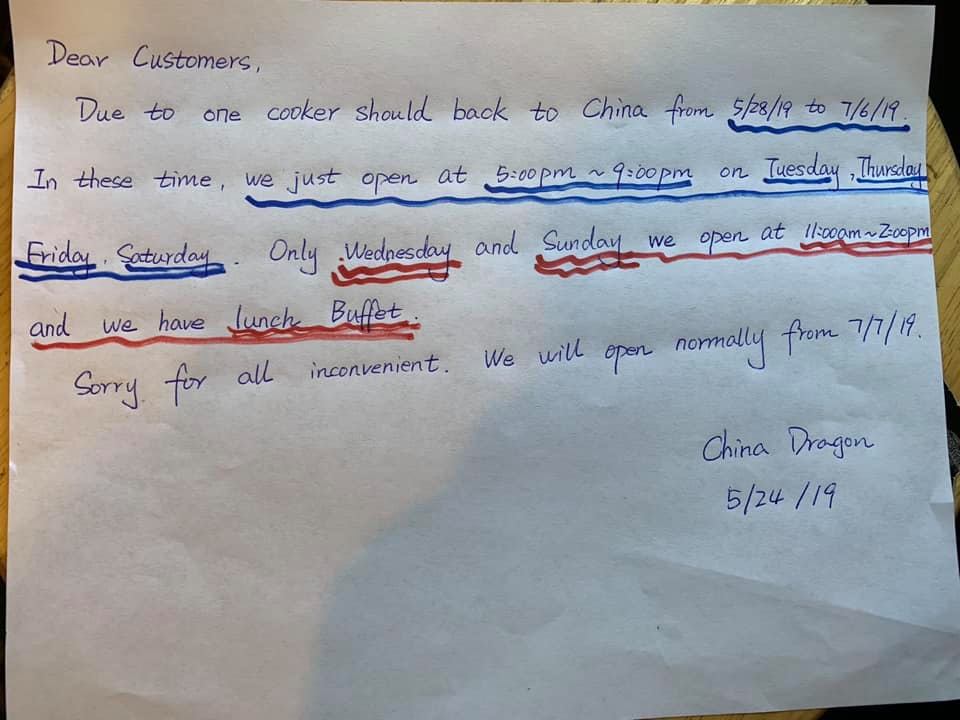 Dear Customers,
Due to one cooker should back to China from 5/28/19 to 7/6/19.
In these time, we just open at 5:00pm ~ 9:00pm on Tuesday, Thursday
Friday, Saturday. Only Wednesday and Sunday we open at 11:00am~2:00pm
and we have lunch Buffet.
Sorry for all inconvenient. We will open normally from 7/7/19.
China Dragon
5/24/19